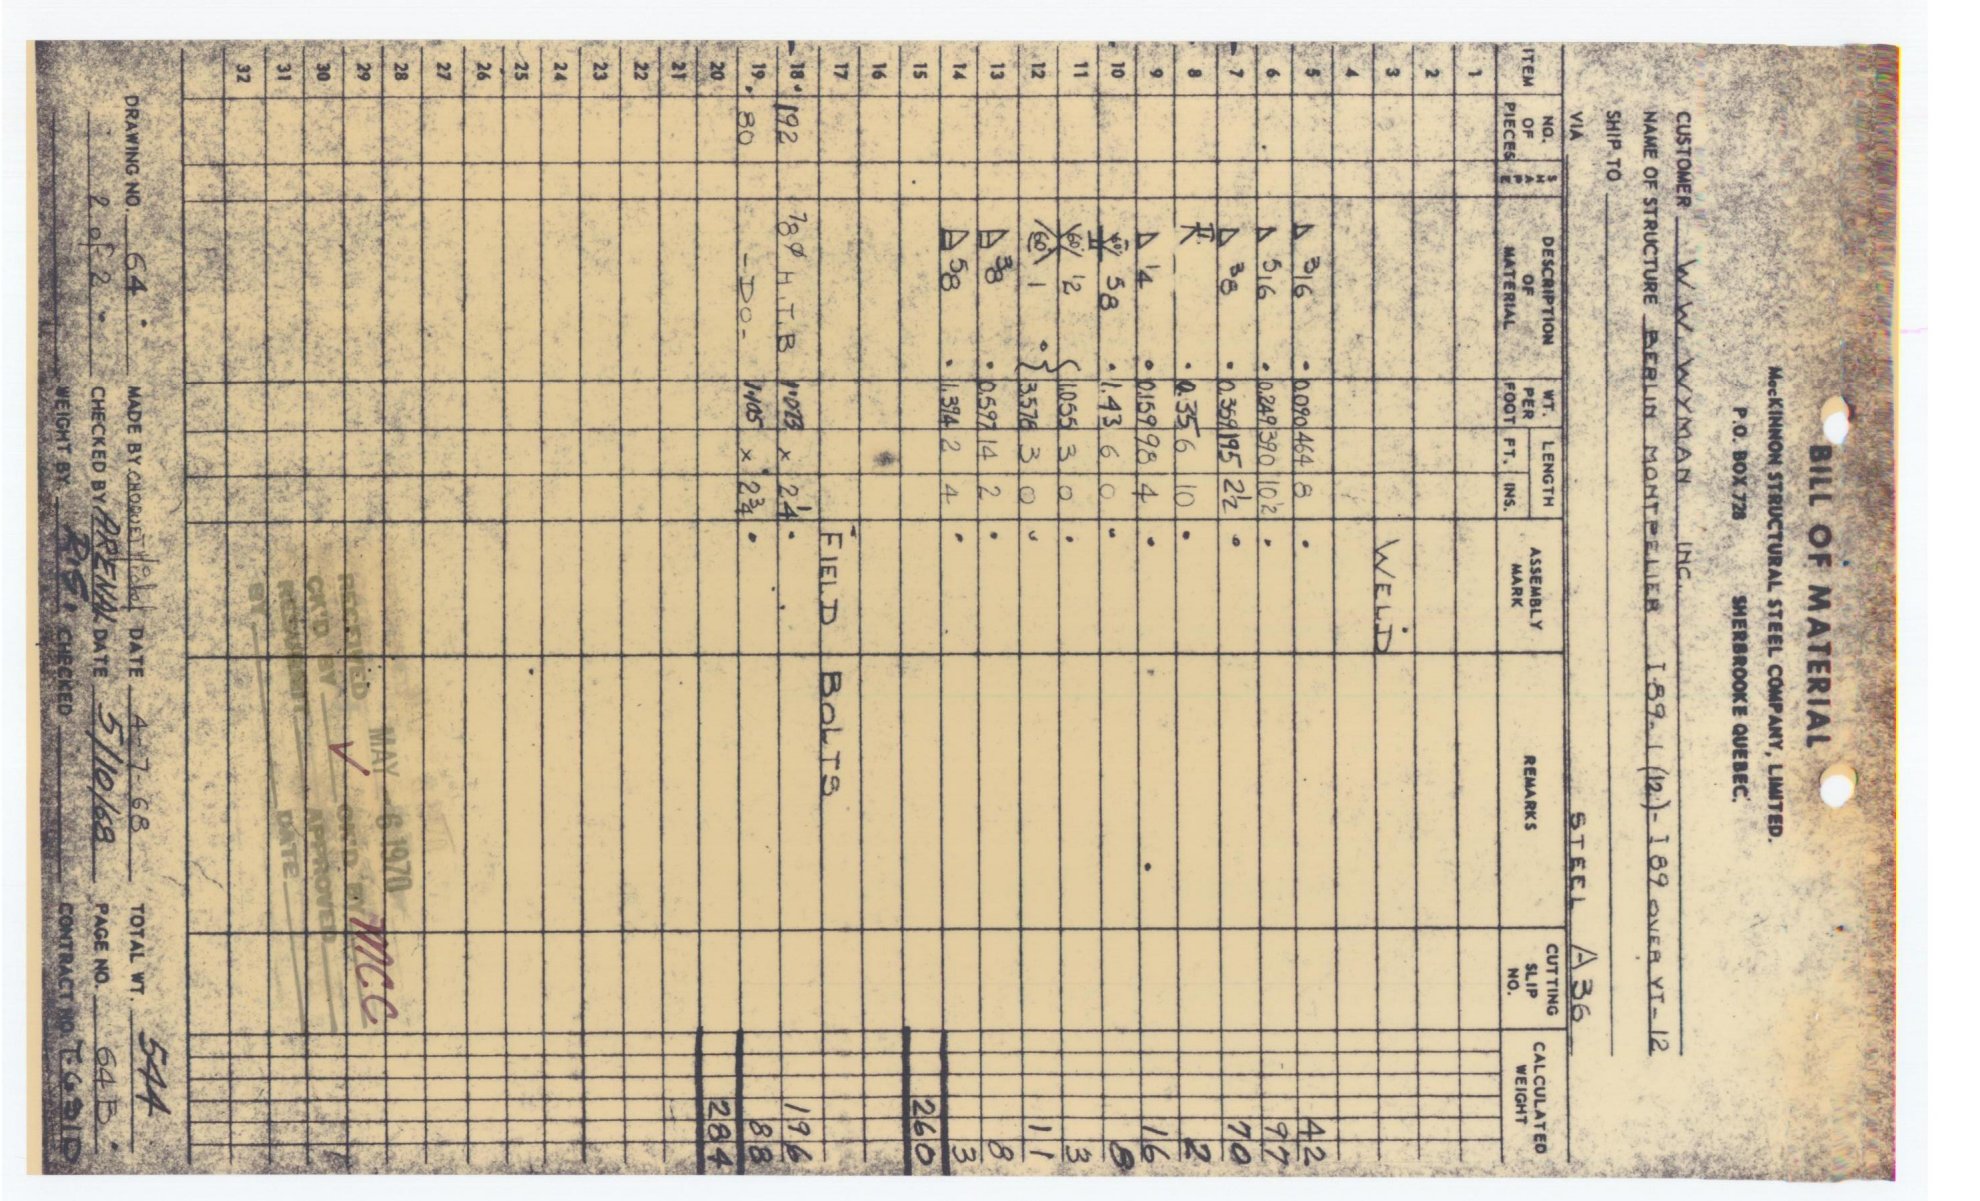 BILL OF MATERIAL
McKINNON STRUCTURAL STEEL COMPANY, LIMITED.
P.O. BOX 728 SHERBROOKE QUEBEC.
CUSTOMER W. W. WYMAN INC.
NAME OF STRUCTURE BERLIN MONTPELIER I-89-1 (12)- I 89 OVER VT-12
SHIP TO
VIA STEEL A36
ITEM NO. OF PIECES SHAPE DESCRIPTION OF MATERIAL WT. PER FOOT LENGTH FT. INS. ASSEMBLY MARK REMARKS CUTTING SLIP NO. CALCULATED WEIGHT
1
2
3 WELD
4
5 3/16 0.090 464 8 42
6 5/16 0.249 390 10 1/2 97
7 3/8 0.359 195 2 1/2 70
8 0.35 6 10 2
9 1/4 0.159 98 4 16
10 60° 5/8 1.43 6 0 8
11 60° 1/2 1.055 3 0 3
12 60° 1 3.576 3 0 11
13 3/8 0.597 14 2 8
14 5/8 1.394 2 4 3
15 260
16
17 FIELD BOLTS
18 192 7/8φ H.T.B x 2 1/4 196
19 80 -DO- x 2 3/4 88
20 284
21
22
23
24
25
26
27
28
29
30
31
32
RECEIVED MAY -6 1970
CK'D BY OK'D BY M.C.C
RESUBMIT APPROVED
BY DATE
DRAWING NO. 64 MADE BY CHOQUETTE DATE 4-7-68 TOTAL WT. 544
2 of 2 CHECKED BY ARENAL DATE 5/10/68 PAGE NO. 64B
WEIGHT BY CHECKED CONTRACT NO.